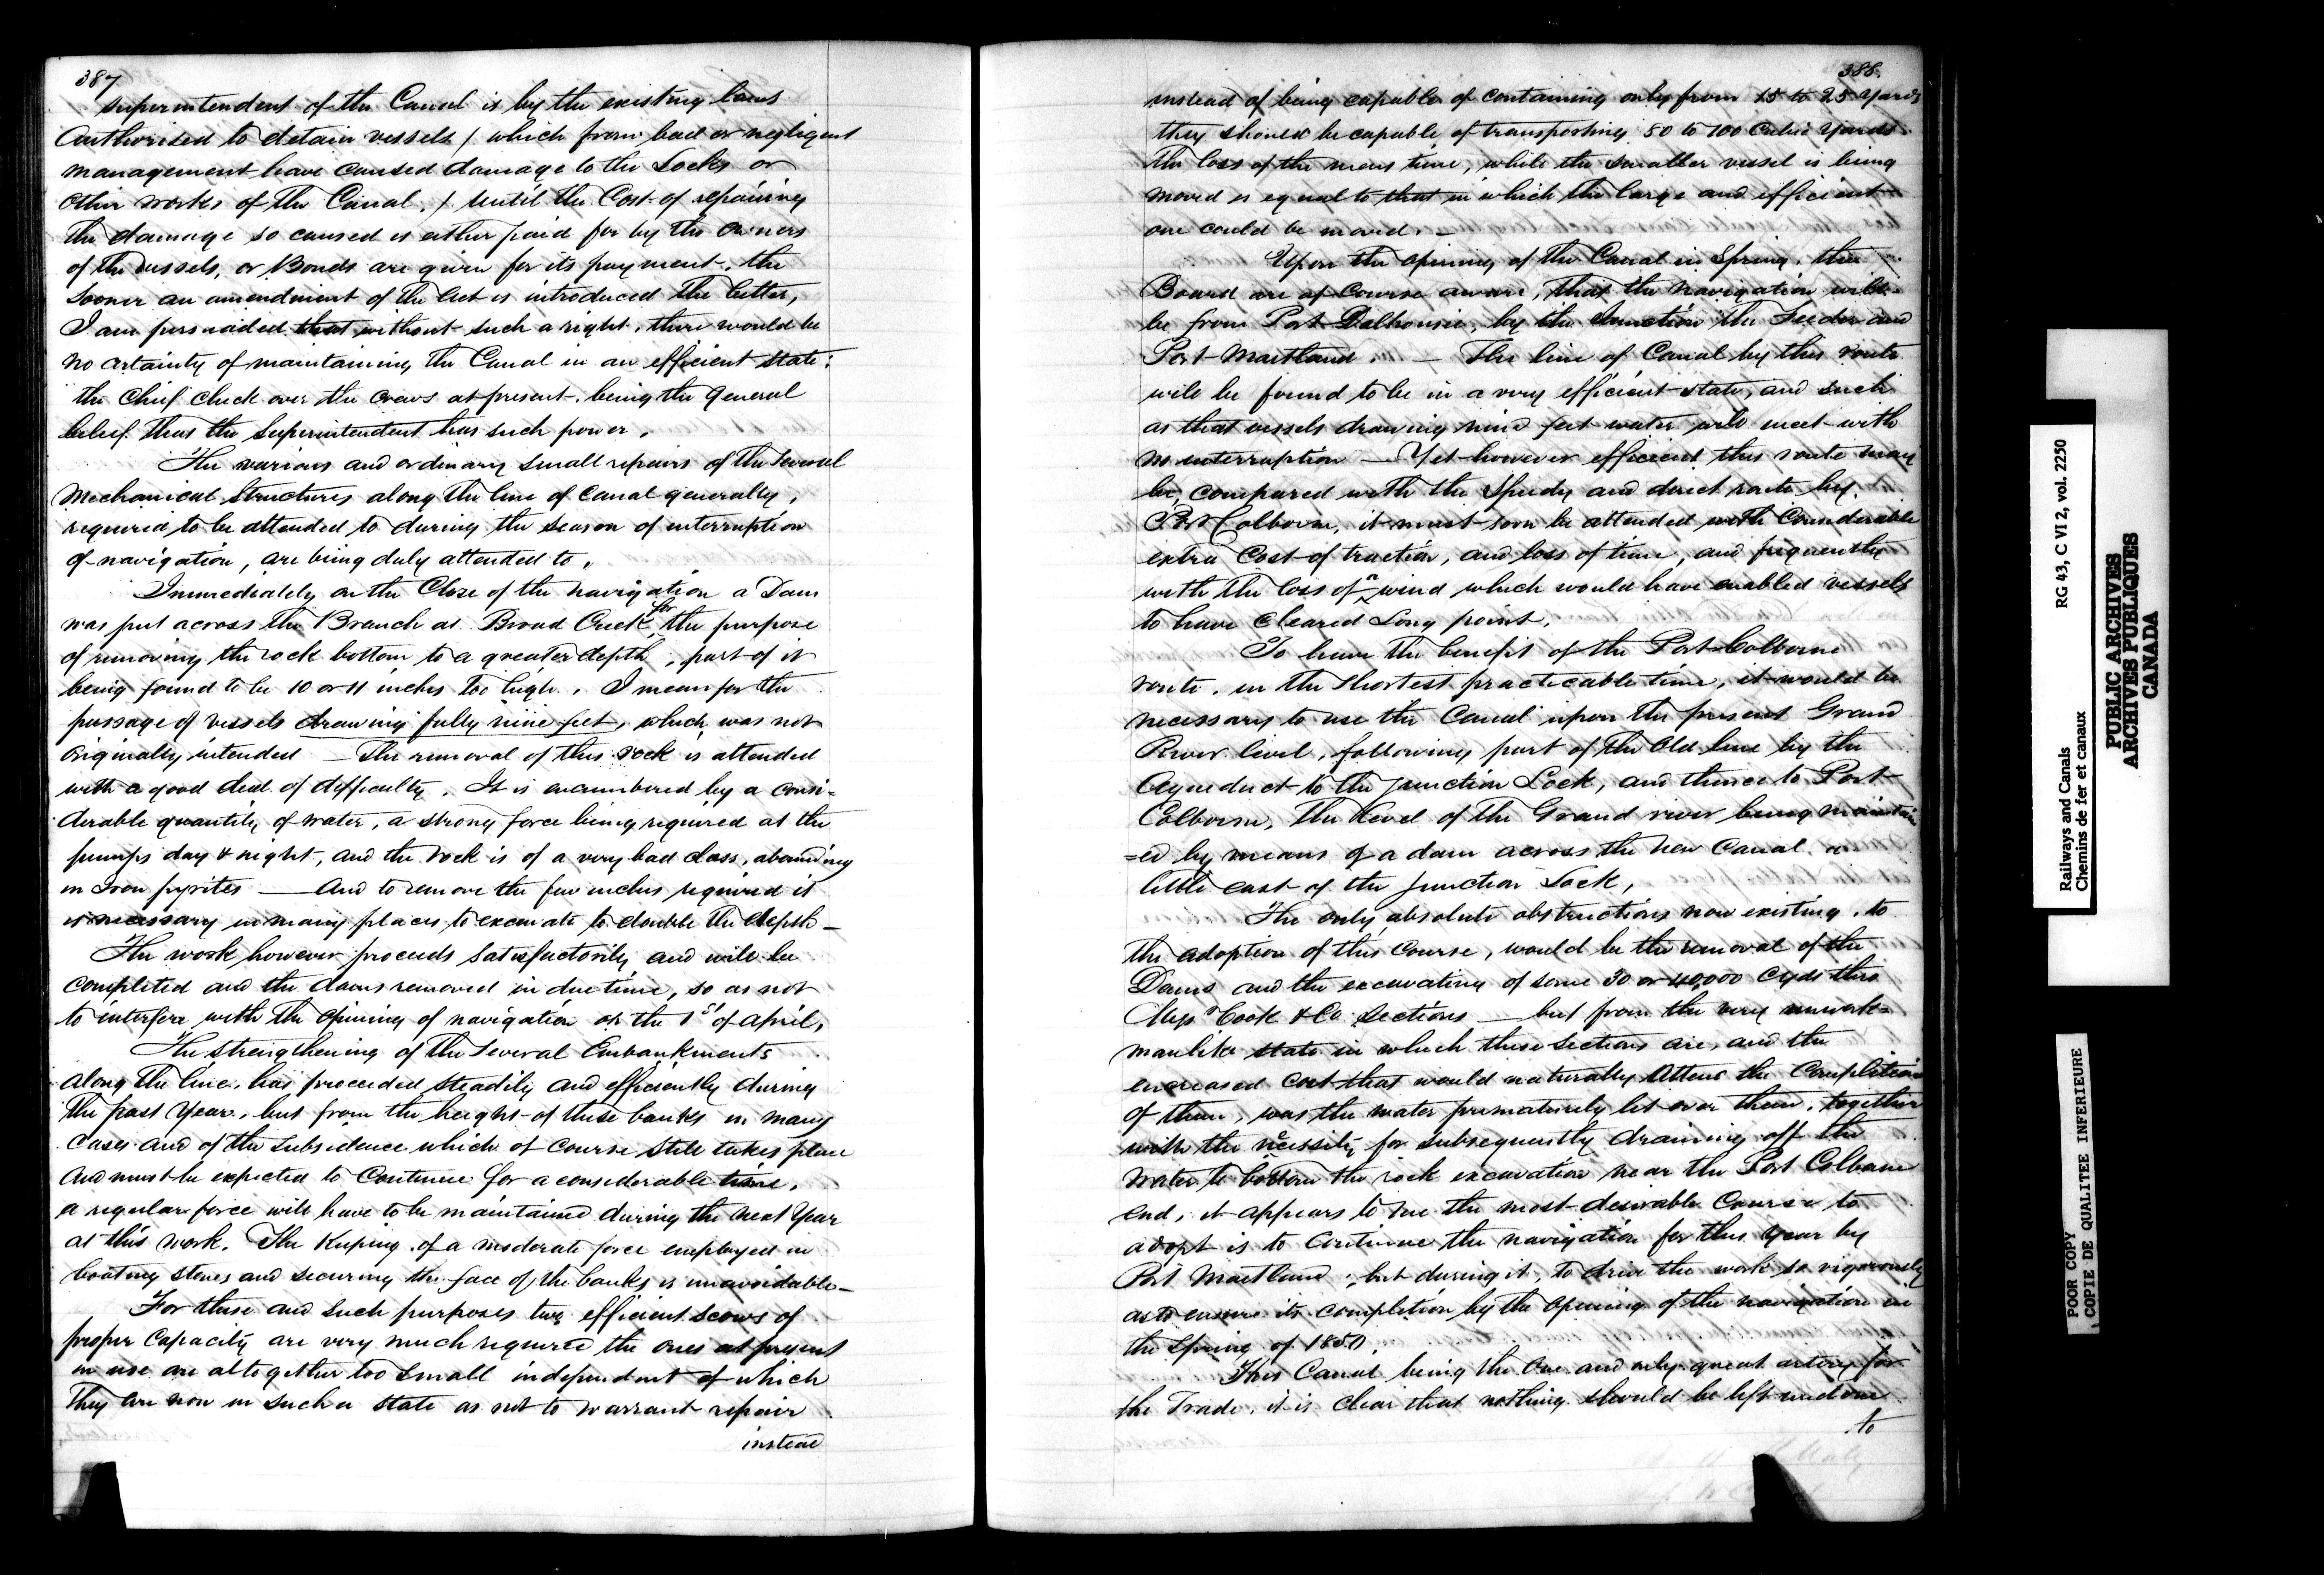 387
superintendent of the Canal is by the existing laws
Authorised to detain vessels / which from bad or negligent
management have caused damage to the Locks or
other works of the Canal, / until the Cost of repairing
the damage so caused is either paid for by the owners
of the vessels, or Bonds are given for its payment, the
sooner an amendment of the Act is introduced the better,
I am persuaded that without such a right, there would be
no certainty of maintaining the Canal in an efficient state:
the Chief check over the crews at present, being the general
belief that the Superintendent has such power.
The various and ordinary small repairs of the several
Mechanical Structures along the line of Canal generally,
required to be attended to during the season of interruption
of navigation, are being duly attended to.
Immediately on the Close of the navigation a Dam
was put across the Branch at Broad Creek for the purpose
of removing the rock bottom to a greater depth, part of it
being found to be 10 or 11 inches too high. I mean for the
passage of vessels drawing fully nine feet, which was not
originally intended — The removal of this rock is attended
with a good deal of difficulty. It is encumbered by a consi-
derable quantity of water, a strong force being required at the
pumps day & night, and the rock is of a very bad class, abounding
in Iron pyrites — And to remove the few inches required it
is necessary in many places to excavate to double the depth —
The work however proceeds satisfactorily and will be
completed and the dams removed in due time, so as not
to interfere with the opening of navigation on the 1st of April,
The strengthening of the several Embankments
along the line, has proceeded steadily and efficiently during
the past Year, but from the height of these banks in many
cases and of the subsidence which of course still takes place
and must be expected to Continue for a considerable time,
a regular force will have to be maintained during the next Year
at this work. The Keeping of a moderate force employed in
boating stones and securing the face of the banks is unavoidable —
For these and such purposes two efficient scows of
proper Capacity are very much required the ones at present
in use are altogether too small independent of which
they are now in such a state as not to warrant repair
instead
388.
instead of being capable of containing only from 15 to 25 yards
they should be capable of transporting 80 to 100 Cubic Yards.
The loss of the mens time, while the smaller vessel is being
moved is equal to that in which the large and efficient
one could be moved. —
Upon the opening of the Canal in Spring, the
Board are of course aware, that the navigation will
be from Port Dalhousie, by the Junction the Feeder and
Port Maitland. — The line of Canal by this route
will be found to be in a very efficient state, and such
as that vessels drawing nine feet water will meet with
no interruption — Yet however efficient this route may
be, compared with the Speedy and direct route by
Port Colborne, it must soon be attended with Considerable
extra Cost of traction, and loss of time, and frequently
with the loss of a wind which would have enabled vessels
to have cleared Long point.
To have the benefit of the Port Colborne
route, in the shortest practicable time, it would be
necessary to use the Canal upon the present Grand
River level, following part of the Old line by the
Aqueduct to the junction Lock, and thence to Port
Colborne, The level of the Grand river being maintain
=ed by means of a dam across the new Canal a
little east of the junction Lock,
The only absolute obstructions now existing, to
the adoption of this Course, would be the removal of the
Dams and the excavating of some 30 or 40,000 Cyds thro
Messrs Cook & Co. Sections — but from the very unwork=
manlike state in which these Sections are, and the
encreased Cost that would naturally Attend the Completion
of them, was the water prematurely let over them, together
with the necessity for subsequently draining off the
water to bottom the rock excavation near the Port Colborne
end, it appears to me the most desirable Course to
adopt is to continue the navigation for this Year by
Port Maitland, but during it, to drive the work so vigorously
as to ensure its completion by the opening of the navigation in
the Spring of 1850.
This Canal being the One and only great artery for
the Trade, it is clear that nothing should be left undone
to
Railways and Canals
Chemins de fer et canaux
RG 43, C VI 2, vol. 2250
PUBLIC ARCHIVES
ARCHIVES PUBLIQUES
CANADA
POOR COPY
COPIE DE QUALITEE INFERIEURE